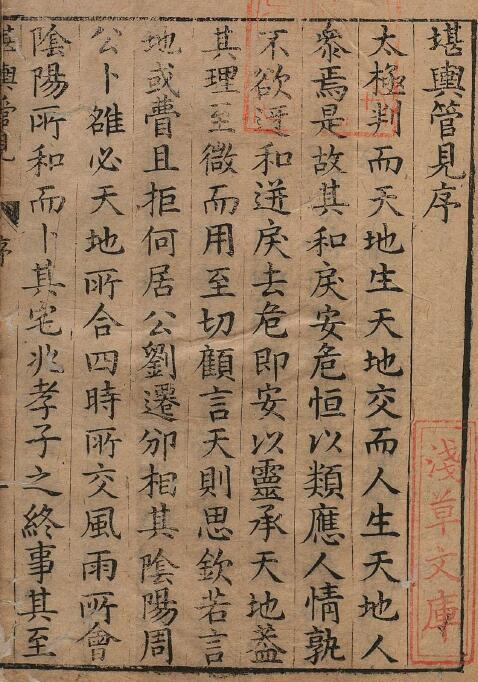 堪輿管見序
太極判而天地生天地交而人生天地人
參焉是故其和戾安危恒以類應人情孰
不欲迓和迸戾去危即安以靈承天地葢
其理至微而用至切顧言天則思欽若言
地或費且拒何居公劉遷邠相其陰陽周
公卜雒必天地所合四時所交風雨所會
陰陽所和而卜其宅兆孝子之終事其至
堪輿管見
序
淺草文庫